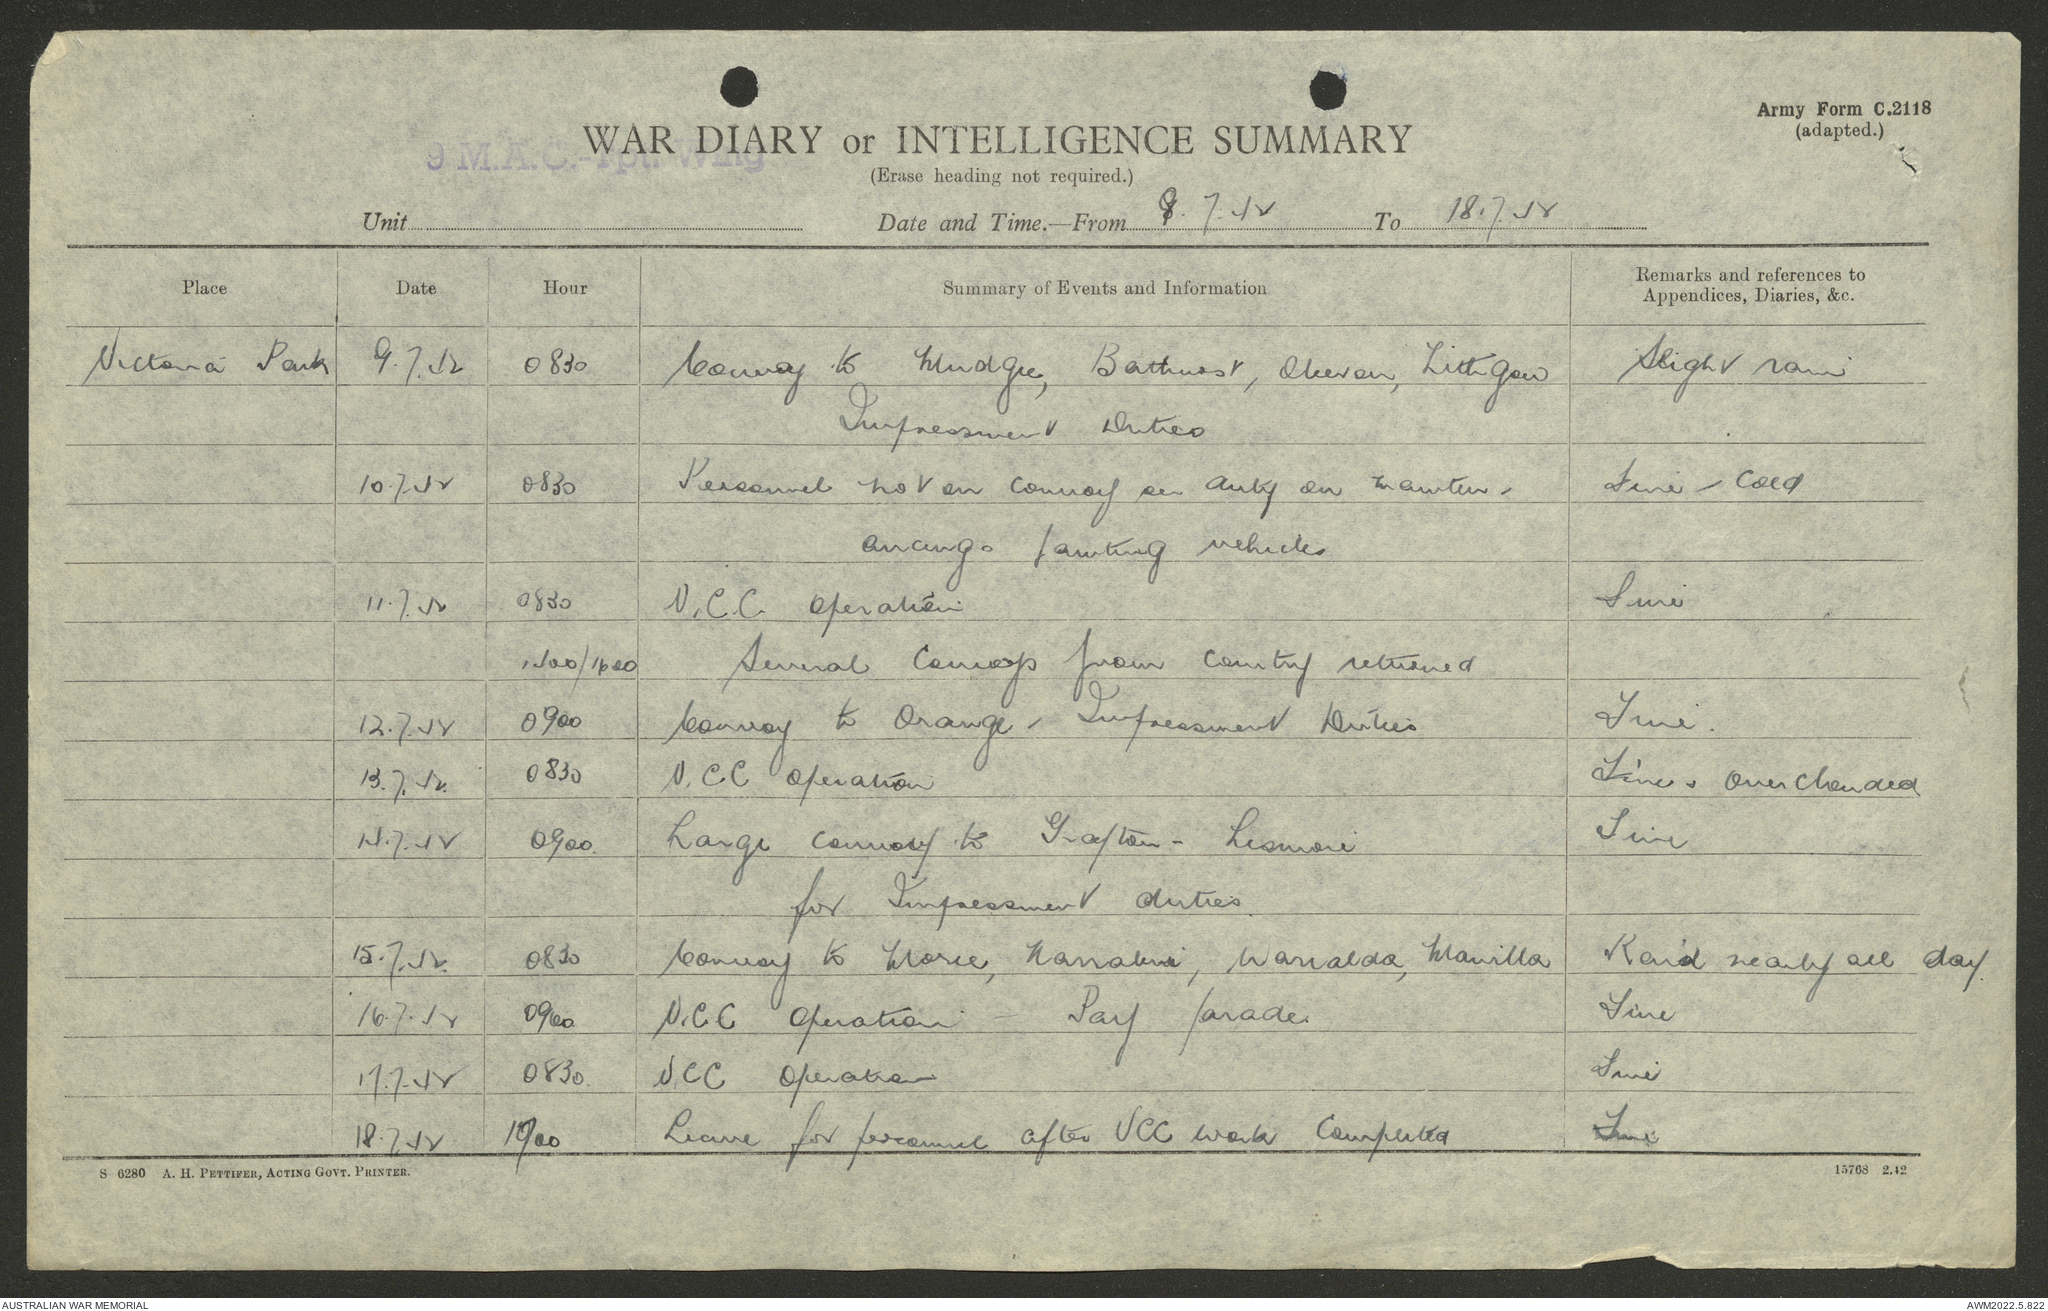 Army Form C.2118
(adapted.)
WAR DIARY or INTELLIGENCE SUMMARY
9 M.A.C.-Tpt. Wing
(Erase heading not required.)
Unit Date and Time.—From 9.7.42 To 18.7.42
Place Date Hour Summary of Events and Information Remarks and references to Appendices, Diaries, &c.
Victoria Park 9.7.42 0830 Convoy to Mudgee, Bathurst, Oberon, Lithgow Slight rain
Impressment Duties
10.7.42 0830 Personnel not on convoy on duty on mainten- Fine - Cold
ancing & painting vehicles
11.7.42 0830 V.C.C. operation Fine
1400/1600 Several Convoys from country returned
12.7.42 0900 Convoy to Orange - Impressment Duties Fine.
13.7.42 0830 V.C.C operation Fine & overclouded
14.7.42 0900. Large convoy to Grafton - Lismore Fine
for Impressment duties.
15.7.42. 0830 Convoy to Moree, Narrabri, Warialda, Manilla Rain'd nearly all day.
16.7.42 0900 V.C.C operation - Pay parade. Fine
17.7.42 0830. V.C.C operation Fine
18.7.42 1900 Leave for personnel after VCC work Completed Fine
S 6280 A. H. PETTIFER, ACTING GOVT. PRINTER. 15768 2.42
AUSTRALIAN WAR MEMORIAL AWM2022.5.822